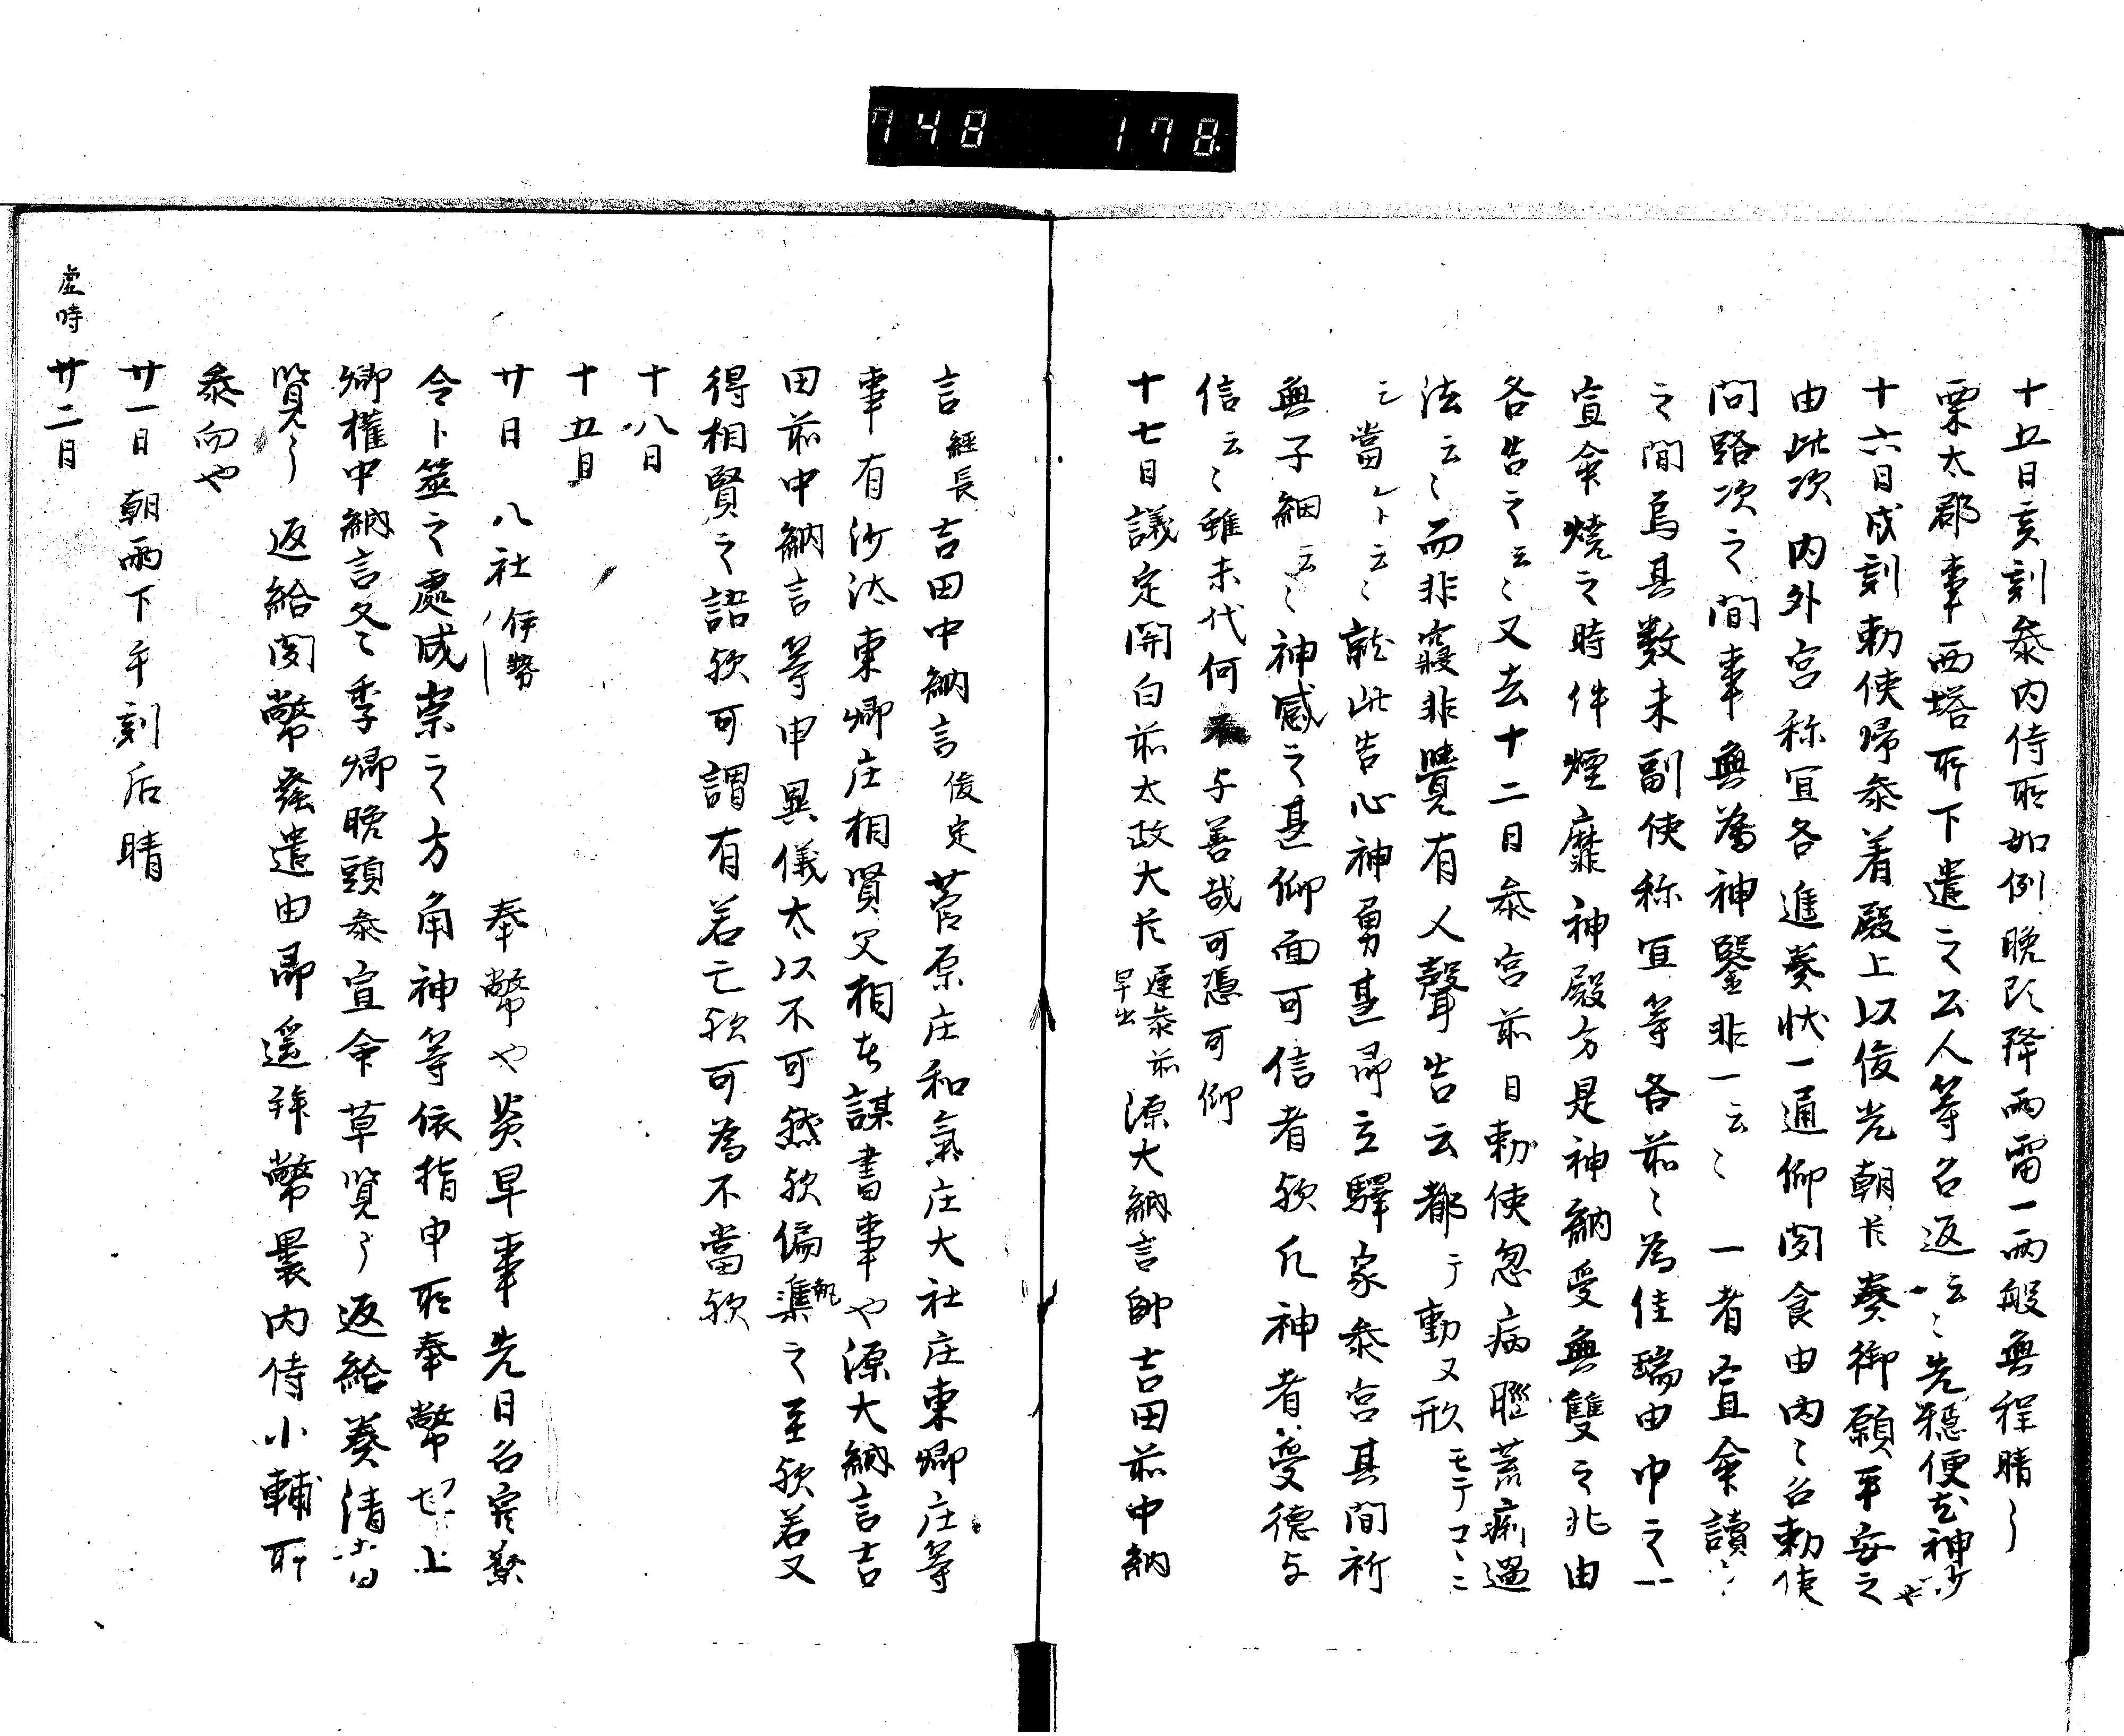 748 178.
十五日亥刻參内侍所如例晩頭降雨雷一兩般無程晴了
栗太郡事西塔所下遣之公人等召返云〻先穩便神妙也
十六日戌刻勅使帰參着殿上以俊光朝臣奏御願平安之
由此次内外宮称冝各進奏状一通仰聞食由内〻召勅使
問路次之間事無為神鑒非一云〻一者宣命讀
之間烏其數未副使称冝等各前〻為佳瑞由申之一
宣命燒之時件煙靡神殿方是神納受無雙之兆由
各告之云〻又去十二日參宮前日勅使忽病腦荒痢過
法云〻而非寢非覺有人聲告云都テ動又形モテコ
當云〻就此告心神勇甚即立驛家參宮其間祈
無子細云〻神感之甚仰而可信者欤凡神者受德与
信云〻雖末代何不与善哉可憑可仰
十七日議定関白前太政大臣遲參前早出源大納言師吉田前中納
言經長吉田中納言俊定菅原庄和氣庄大社庄東郷庄等
事有沙汰東郷庄相賢父相存謀書事也源大納言吉
田前中納言等申異儀太以不可然欤偏執之至欤若又
得相賢之語欤可謂有若亡欤可為不當欤
十八日
十五日
廿日 八社伊勢 奉幣也炎旱事先日召官寮
令卜筮之處成祟之方角神等依指申所奉幣也上
卿權中納言冬季卿晩頭參宣命草覽了返給奏清書
覽了返給聞幣發遣由即遥拜幣裹内侍小輔所
參向也
廿一日朝雨下午刻后晴
虚時 廿二日